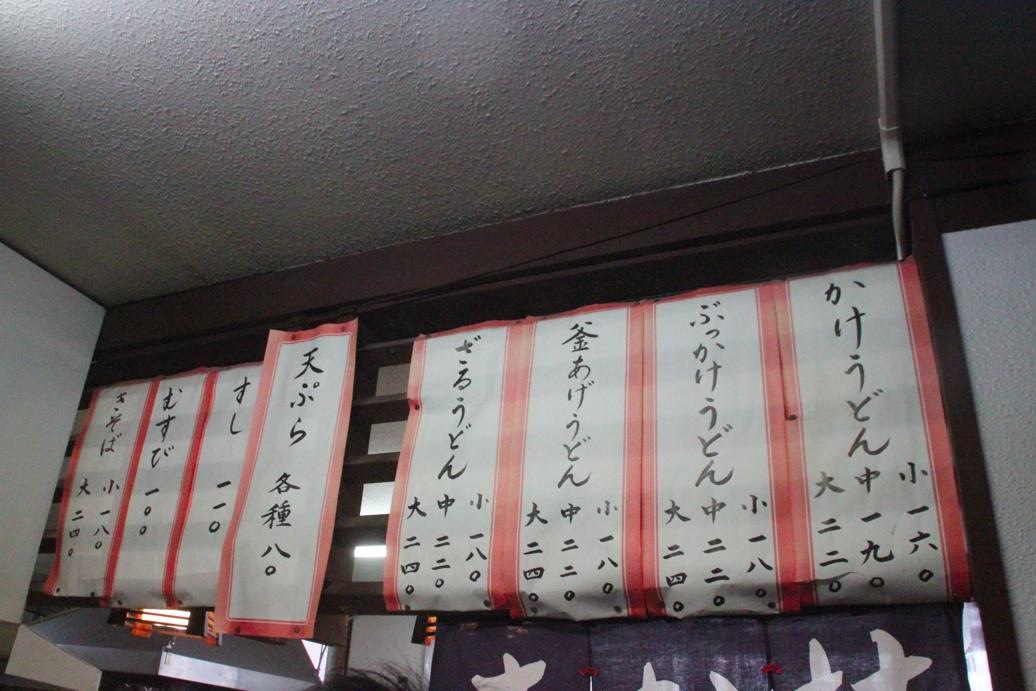 かけうどん
小 一六〇
中 一九〇
大 二二〇
ぶっかけうどん
小 一八〇
中 二二〇
大 二四〇
釜あげうどん
小 一八〇
中 二二〇
大 二四〇
ざるうどん
小 一八〇
中 二二〇
大 二四〇
天ぷら 各種 八〇
すし 一一〇
むすび 一〇〇
きそば
小 一八〇
大 二四〇